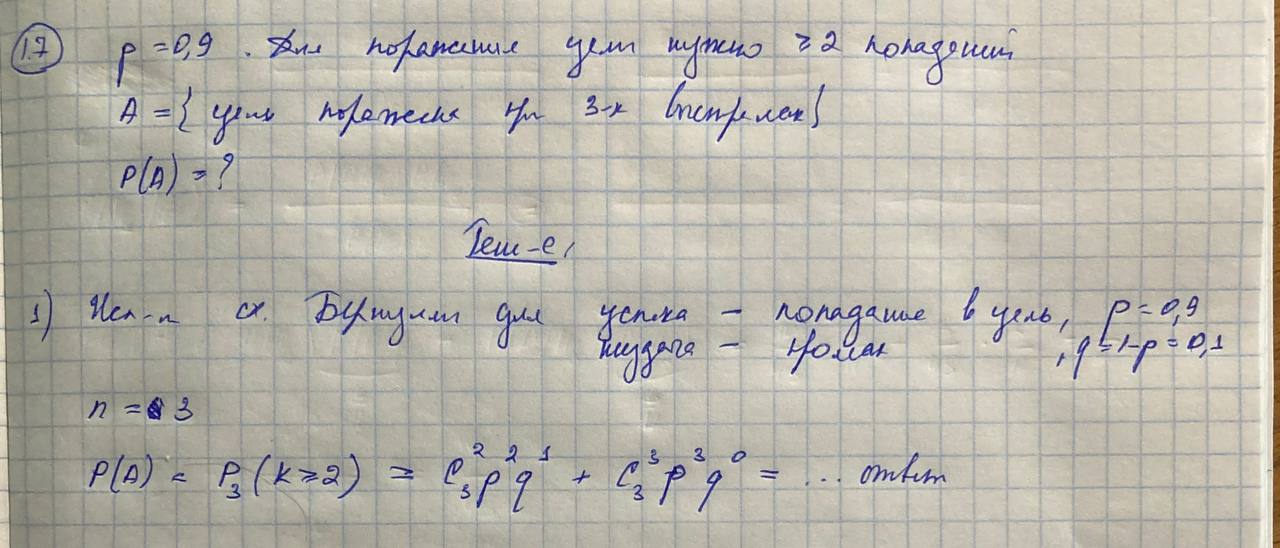 1.7 p = 0,9. Для поражения цели нужно ≥ 2 попаданий
A = { цель поражена при 3-х выстрелах }
P(A) = ?
Реш-е,
1) Исп-м сх. Бернулли для успеха – попадание в цель, p = 0,9
неудача – промах , q = 1-p = 0,1
n = 3
P(A) = P₃(k ≥ 2) = C₃²p²q¹ + C₃³p³q⁰ = ... ответ